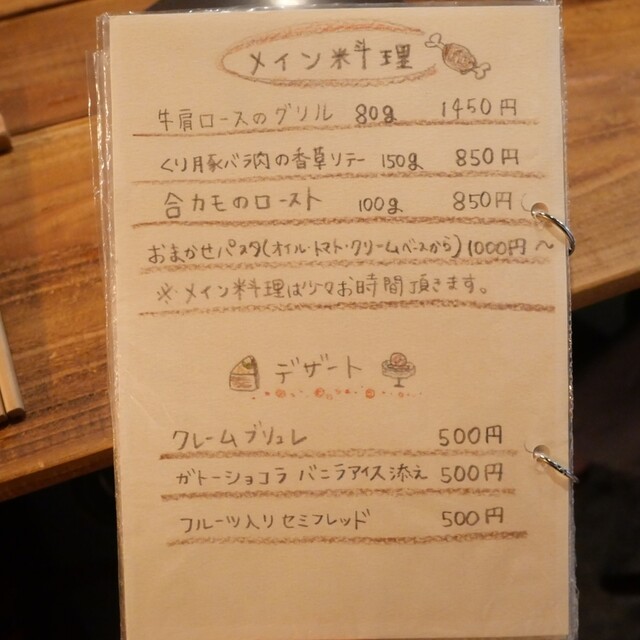 メイン料理
牛肩ロースのグリル 80g 1450円
くり豚バラ肉の香草リテー 150g 850円
合カモのロースト 100g 850円
おまかせパスタ(オイル・トマト・クリームベースから) 1000円〜
※メイン料理は少々お時間頂きます。
デザート
クレームブリュレ 500円
ガトーショコラ バニラアイス添え 500円
フルーツ入りセミフレッド 500円